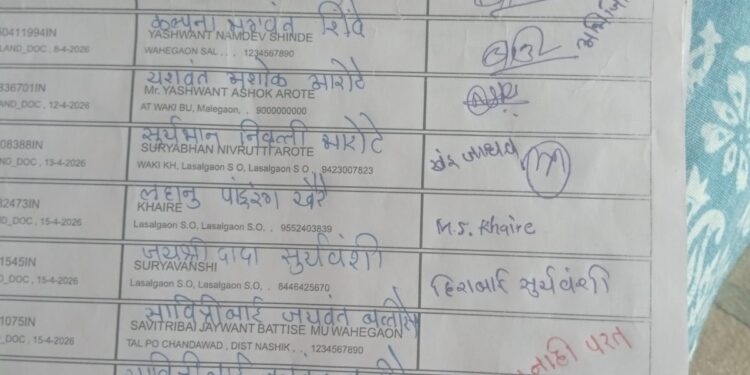 कल्पना यशवंत शिंदे
0411994IN
YASHWANT NAMDEV SHINDE
LAND_DOC , 8-4-2026
WAHEGAON SAL . . . 1234567890
यशवंत अशोक आरोटे
836701IN
Mr. YASHWANT ASHOK AROTE
AND_DOC , 12-4-2026
AT WAKI BU, Malegaon, . 9000000000
सुर्यभान निवृत्ती आरोटे
08388IN
SURYABHAN NIVRUTTI AROTE
ND_DOC , 13-4-2026
WAKI KH, Lasalgaon S.O, Lasalgaon S.O, 9423007823
लहानु पांडुरंग खैरे
82473IN
KHAIRE
ND_DOC , 15-4-2026
Lasalgaon S.O, Lasalgaon S.O, . 9552403839
M.S. Khaire
जयश्री दादा सुर्यवंशी
1545IN
SURYAVANSHI
D_DOC , 15-4-2026
Lasalgaon S.O, Lasalgaon S.O, . 8446425670
हिराबाई सुर्यवंशी
सावित्रीबाई जयवंत बत्तीसे
1075IN
SAVITRIBAI JAYWANT BATTISE MU WAHEGAON
D_DOC , 15-4-2026
TAL PO CHANDAWAD , DIST NASHIK , . 1234567890
नाही परत